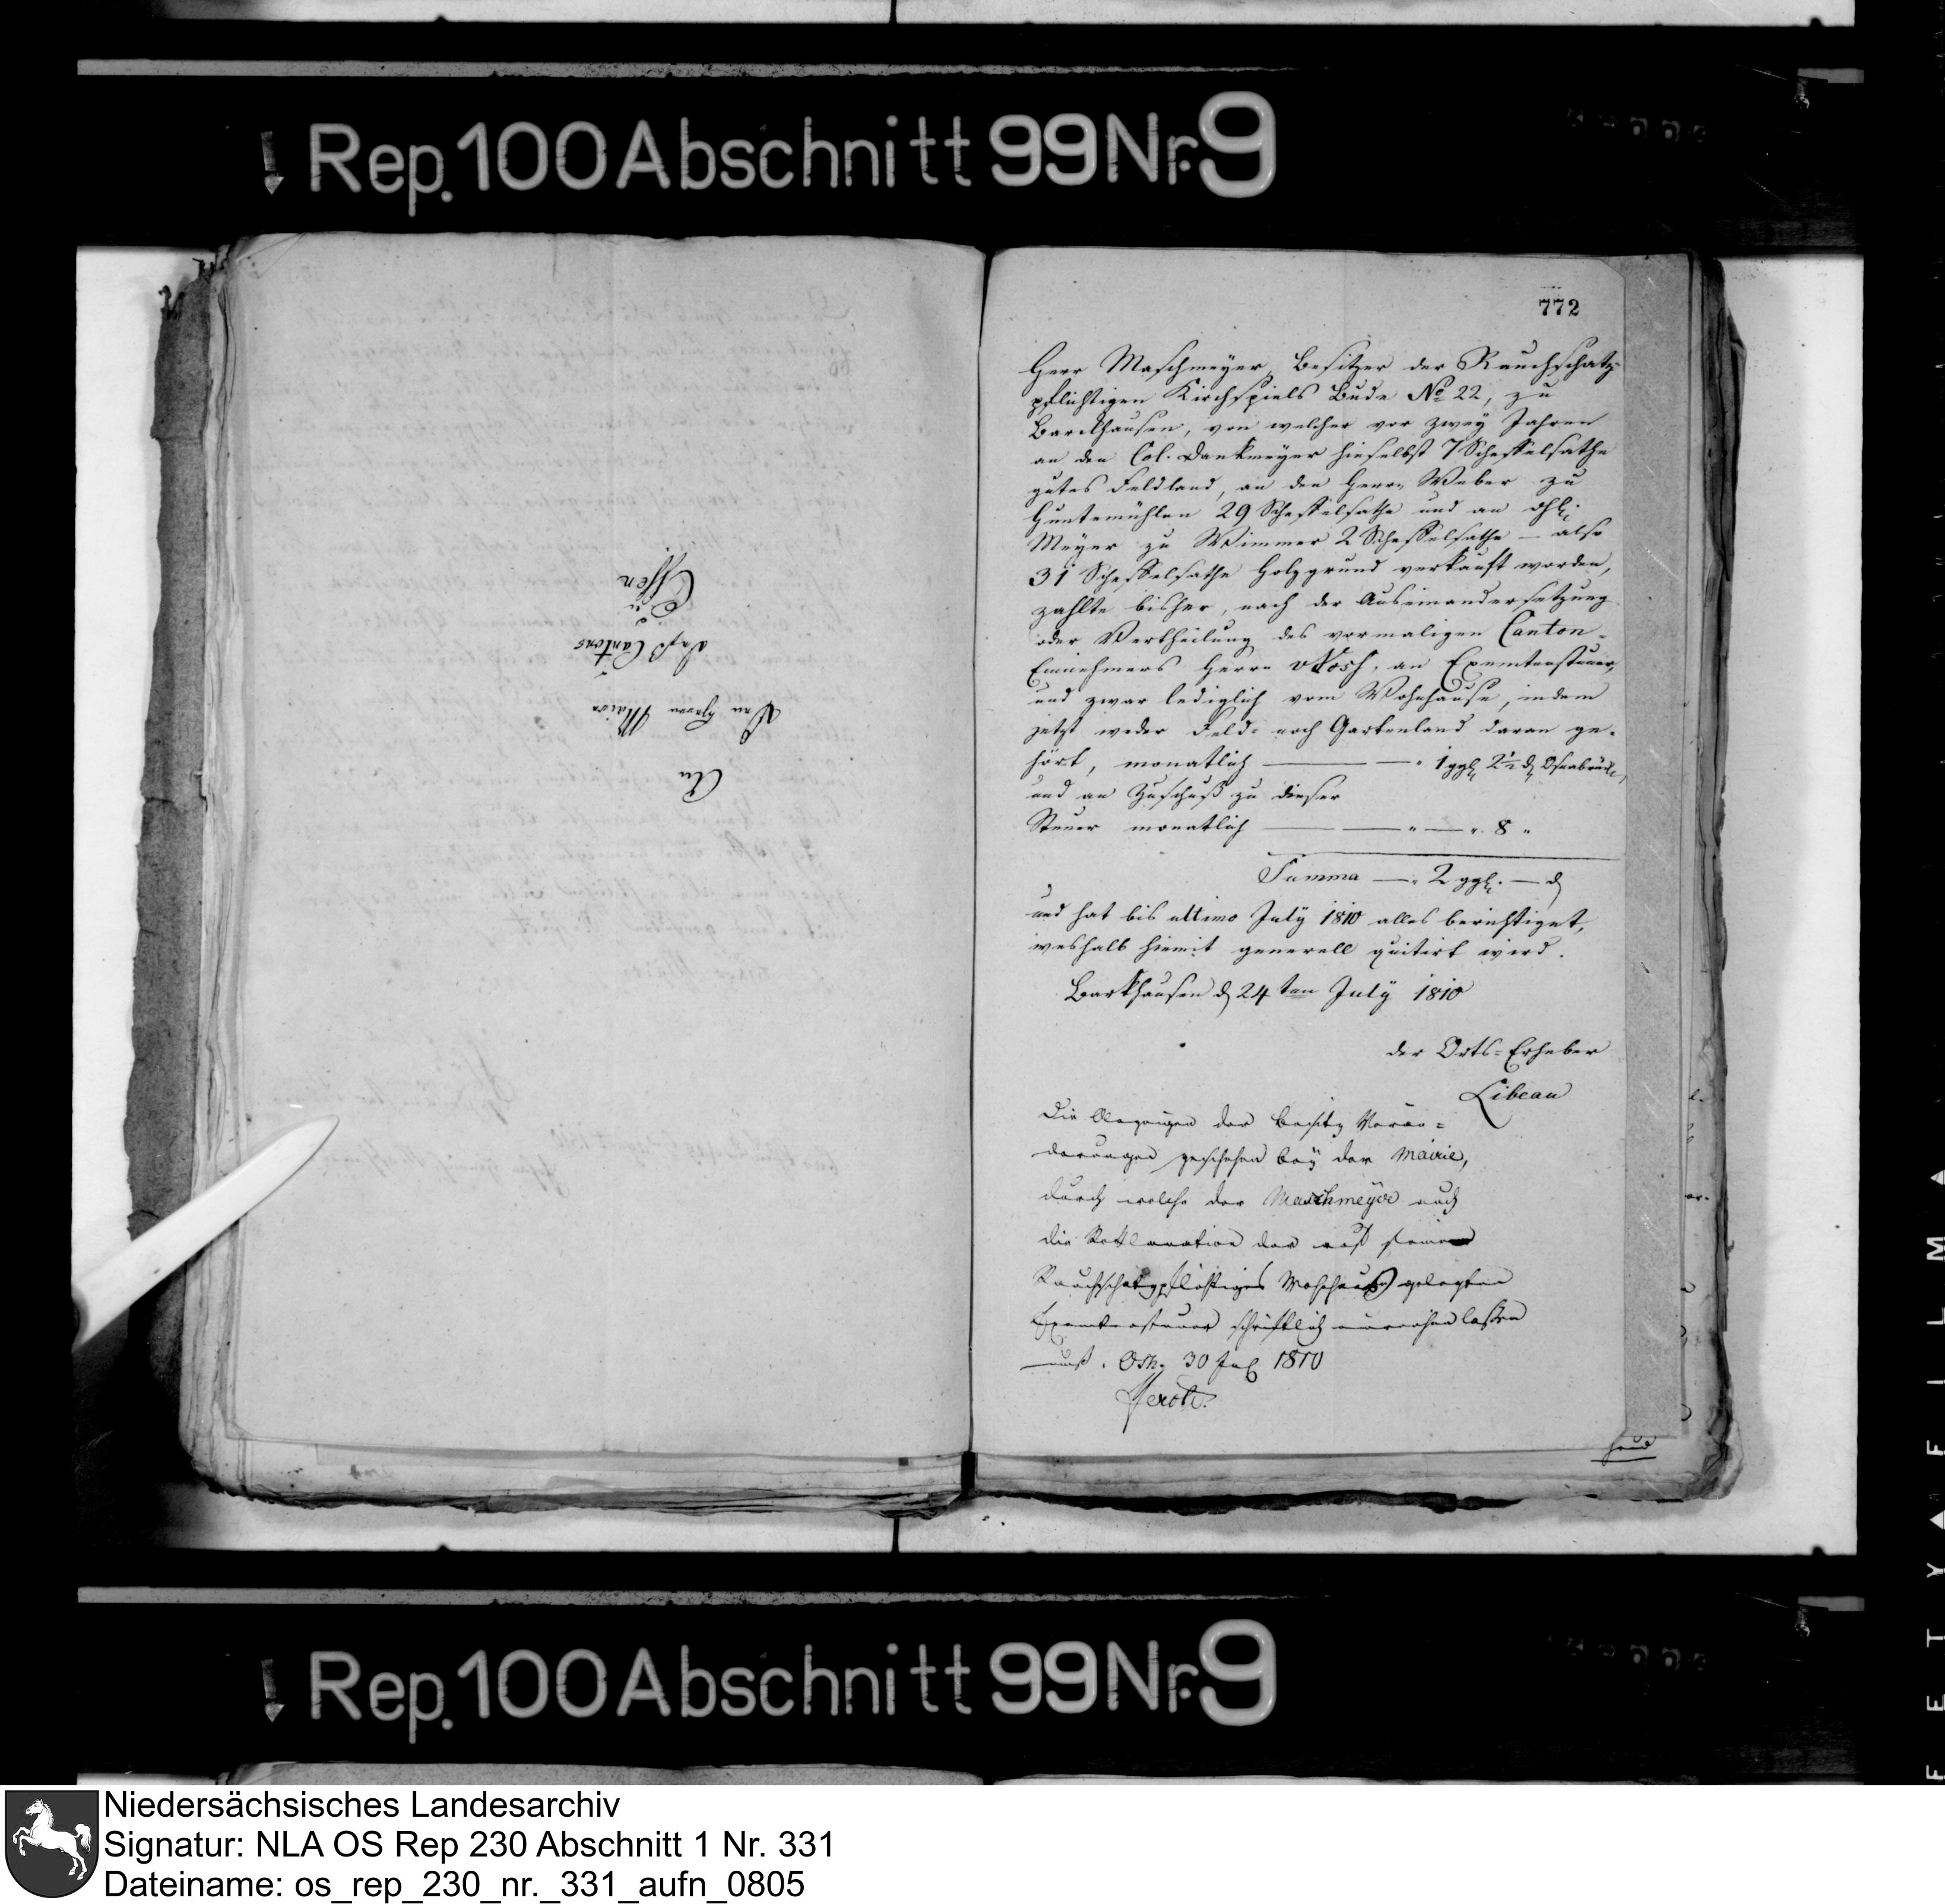 Rep. 100 Abschnitt 99 Nr. 9
An
Den Herrn Maire
des Cantons
zu
Essen
772
Herr Maschmeyer, Besitzer der Rauchschatz-
pflichtigen Kirchspiels Bude No 22, zu
Barckhausen, von welcher vor zweÿ Jahren
an den Col. Dankmeyer hieselbst 7 Scheffelsathe
gutes Feldland, an den Herrn Weber zu
Huntemühlen 29 Scheffelsathe und an
Meyer zu Wimmer 2 Scheffelsathe – also
31 Scheffelsathe Holzgrund verkauft worden,
zahlte bisher, nach der Auseinandersetzung
oder Vertheilung des vormaligen Canton-
Einnehmers Herrn v Voss, an Exemtensteuer,
und zwar lediglich vom Wohnhause, indem
jetzt weder Feld- noch Gartenland daran ge-
hört, monatlich — — " 1 ggl 2½ d Osnabrück,
und an Zuschuß zu dieser
Steuer monatlich — — " — " 8 "
Summa — " 2 ggl. — d
und hat bis ultimo Julÿ 1810 alles berichtiget,
weshalb hiemit generell quitirt wird.
Barkhausen d 24ten Julÿ 1810
der Orts-Erheber
Libeau
Die Anzeigen der Besitz Verän=
derungen geschehen beÿ der Mairie,
durch welche der Maschmeÿer auch
die Reklamation der auf sein
Rauchschatzpflichtiges Wohnhauß gelegten
Exemtensteuer schriftlich einreichen lassen
muß. Osn. 30 Jul 1810
Rep. 100 Abschnitt 99 Nr. 9
Niedersächsisches Landesarchiv
Signatur: NLA OS Rep 230 Abschnitt 1 Nr. 331
Dateiname: os_rep_230_nr._331_aufn_0805